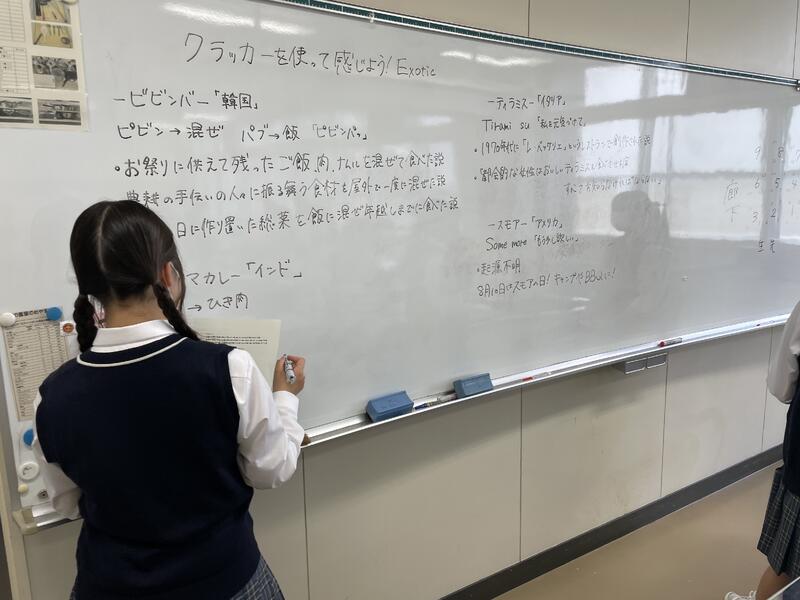 クラッカーを使って感じよう! Exotic
ービビンバー「韓国」
ピビン→混ぜ パブ→飯 「ピビンパッ」
・お祭りに供えて残ったご飯、肉、ナムルを混ぜて食べた説
農耕の手伝いの人々に振る舞う食材を屋外で一度に混ぜた説
日に作り置いた総菜を飯に混ぜ年越しまでに食べた説
マカレー「インド」
→ひき肉
ーティラミスー「イタリア」
Tirami su 「私を元気づけて」
・1970年代に「レ・ベッケリエ」というレストランで創作された説
ースモアー「アメリカ」
Some more 「もう少し欲しい」
・起源不明
8月10日はスモアの日! キャンプやBBQに!
9
6 5 4
3 2 1
廊
下